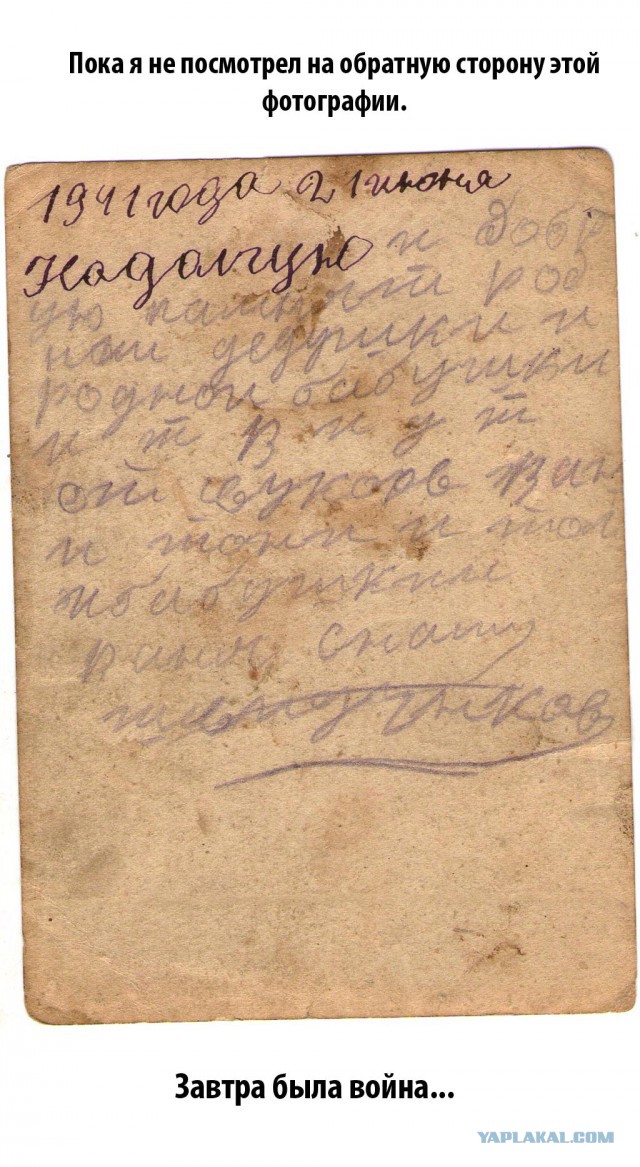 Пока я не посмотрел на обратную сторону этой
фотографии.
1941 года 21 июня
На долгую и добр
ую память род
ной дедушки и
родной бабушки
и т в н у т
от внуков Ван
и тони и тол
и бабушкин
Завтра была война...
YAPLAKAL.COM